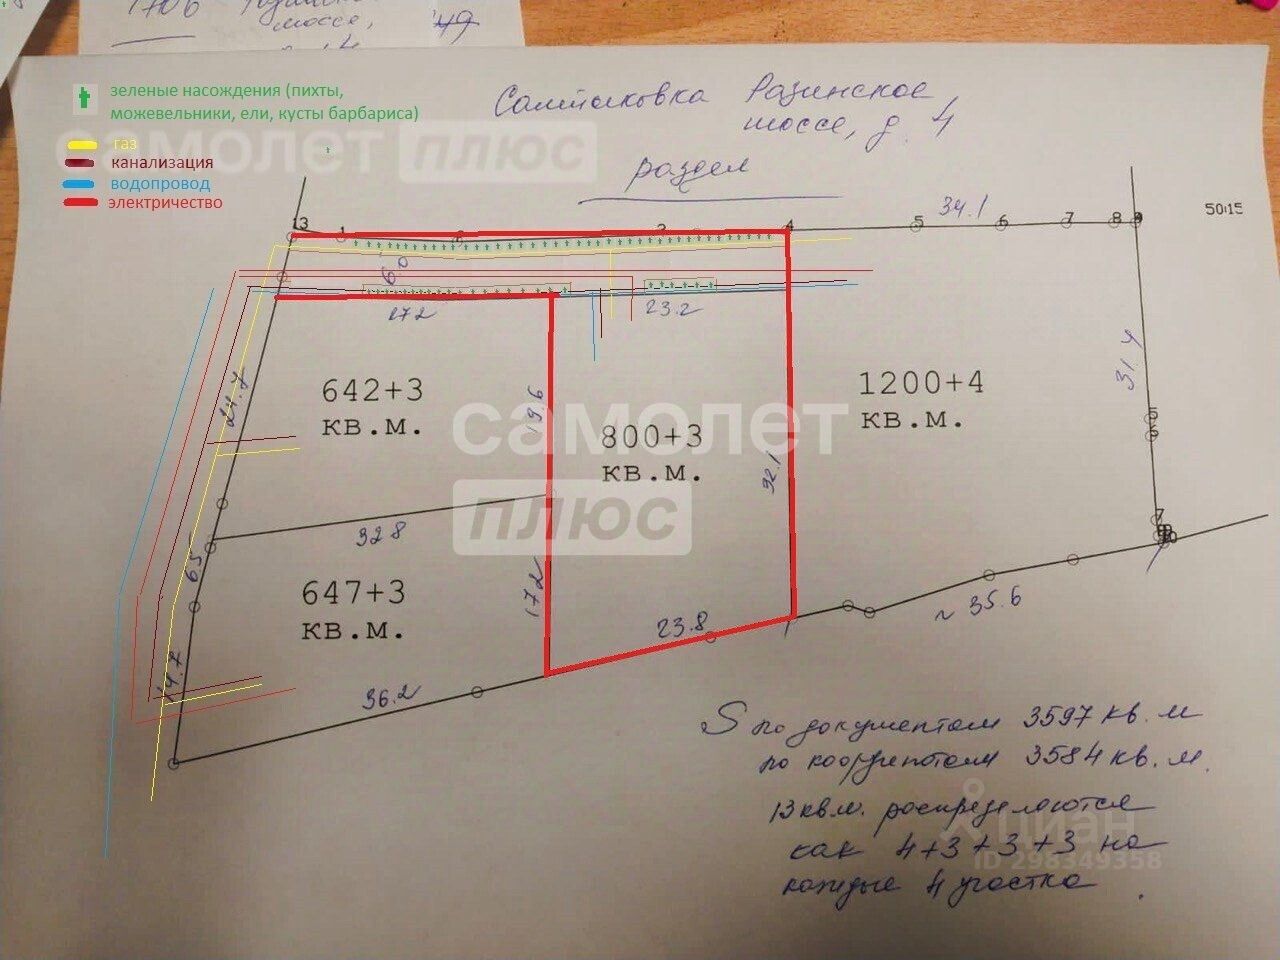 1706
шоссе,
49
зеленые насождения (пихты,
можевельники, ели, кусты барбариса)
газ
канализация
водопровод
электричество
Салтыковка Разинское
шоссе, д. 4
раздел
самолет плюс
13 1 2 3 4 5 6 7 8 9
34.1
50:15
6.0
172
23.2
24.7
642+3
кв.м.
19.6
800+3
кв.м.
1200+4
кв.м.
31.4
32.1
самолет
плюс
328
65
647+3
кв.м.
172
14.7
36.2
23.8
~ 35.6
5
7
10
S по документам 3597 кв.м
по координатам 3584 кв.м.
13 кв.м. распределяются
как 4+3+3+3 на
каждые 4 участка.
циан
ID 298349358